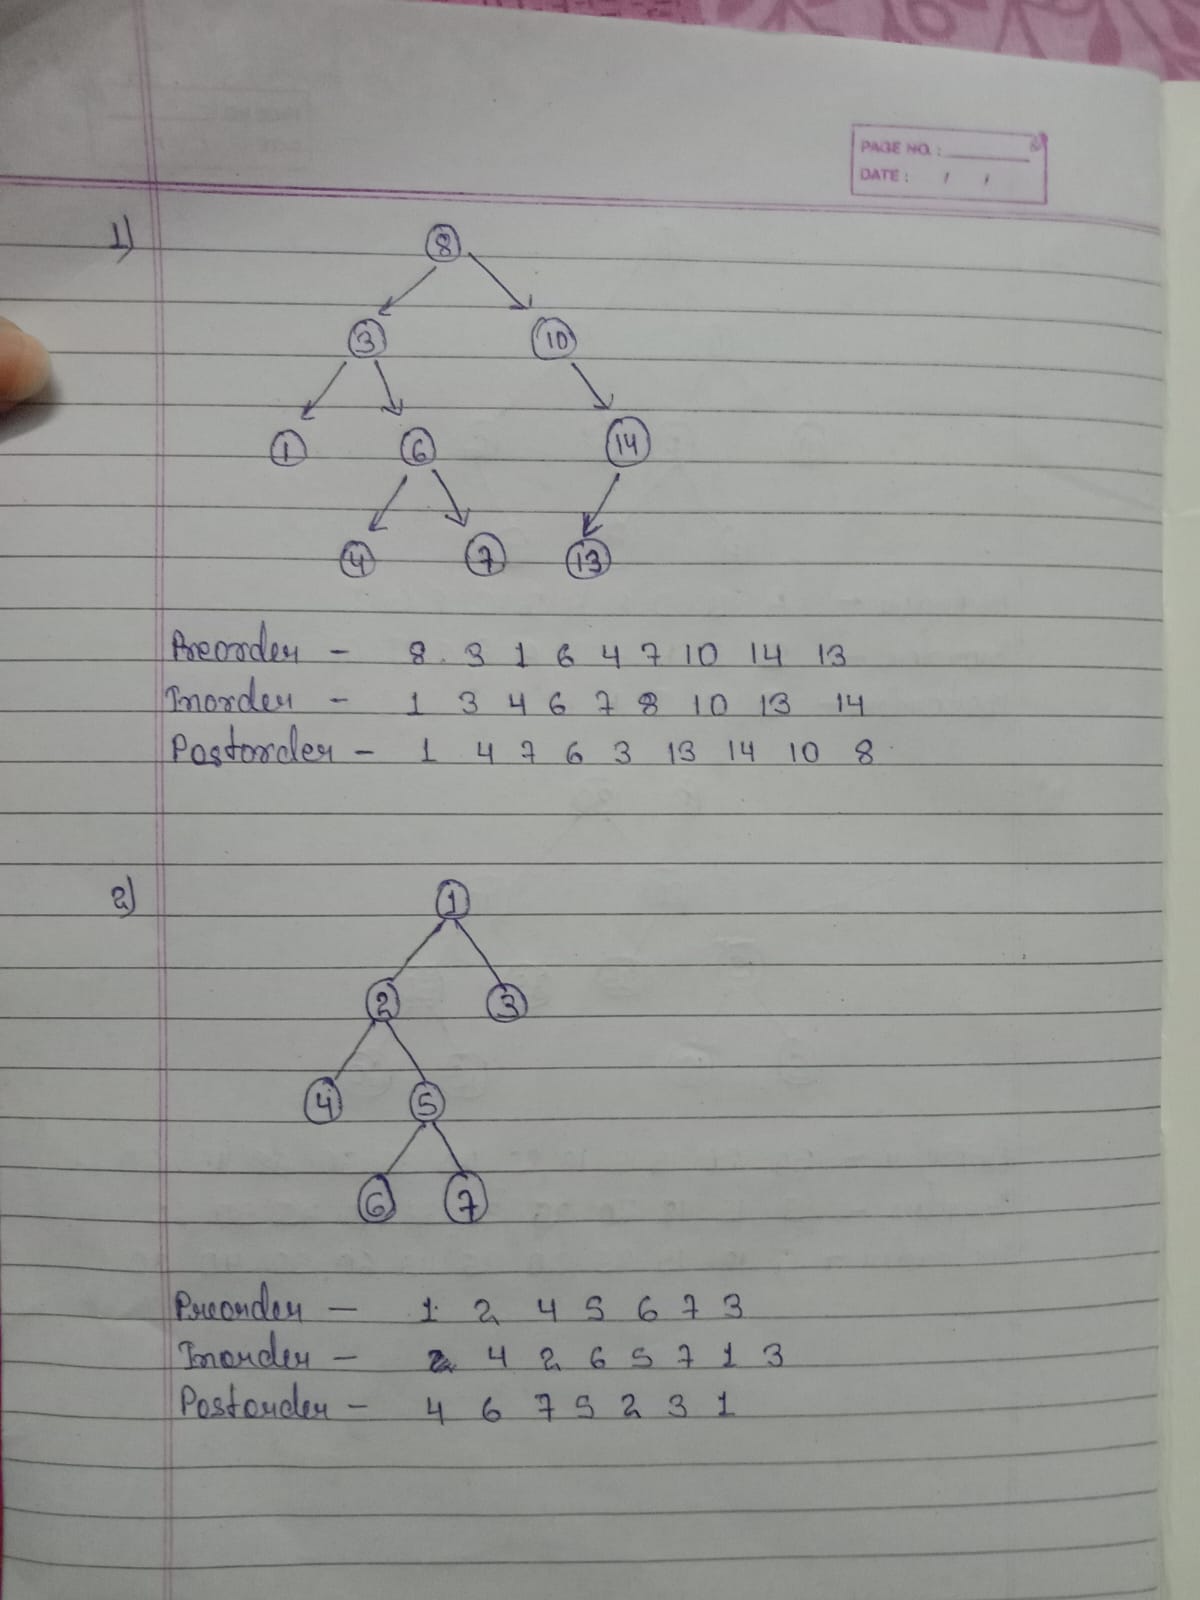 PAGE NO. :
DATE : / /
1)
8
3 10
1 6 14
4 7 13
Preorder - 8 3 1 6 4 7 10 14 13
Inorder - 1 3 4 6 7 8 10 13 14
Postorder - 1 4 7 6 3 13 14 10 8
2)
1
2 3
4 5
6 7
Preorder - 1 2 4 5 6 7 3
Inorder - 4 2 6 5 7 1 3
Postorder - 4 6 7 5 2 3 1